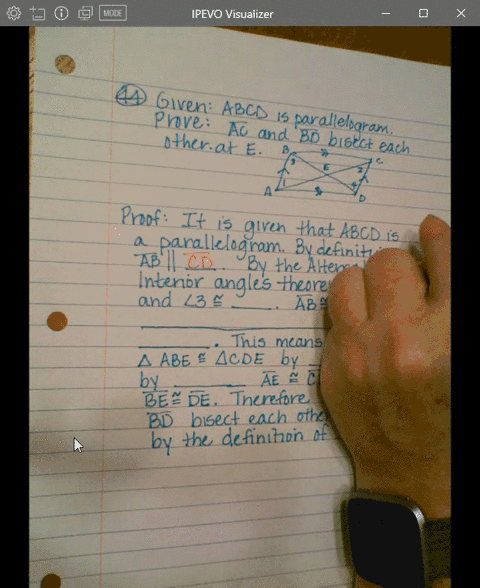 IPEVO Visualizer
MODE
44 Given: ABCD is parallelogram.
Prove: AC and BD bisect each
other at E.
B C
3 2
E
1 4
A D
Proof: It is given that ABCD is
a parallelogram. By
AB || CD. By the
Interior angles
and ∠3 ≅ ____. AB ≅
____. This means
△ABE ≅ △CDE by
by ____ AE ≅
BE ≅ DE. Therefore
BD bisect each
by the definition of